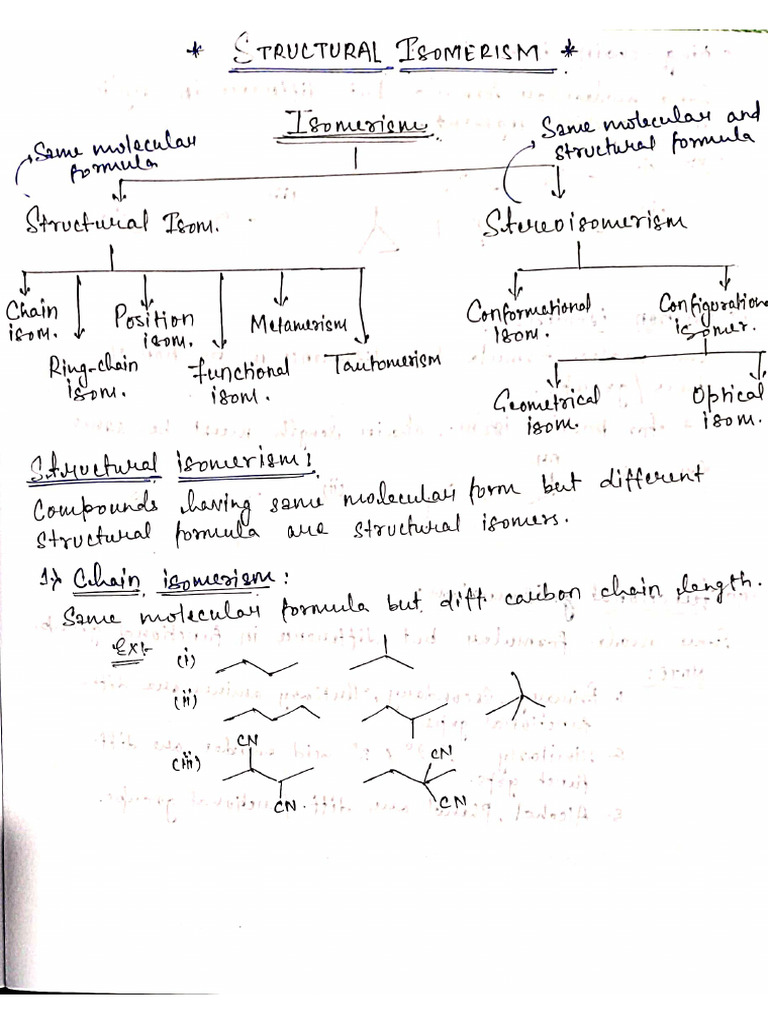 * STRUCTURAL ISOMERISM *
Isomerism
Same molecular
formula
Same molecular and
structural formula
Structural Isom.
Stereoisomerism
Chain
isom.
Position
isom.
Metamerism
Ring-chain
isom.
Functional
isom.
Tautomerism
Conformational
Isom.
Configuration
isomer.
Geometrical
isom.
Optical
isom.
Structural isomerism:
Compounds having same molecular form but different
structural formula are structural isomers.
1> Chain isomerism:
Same molecular formula but diff. carbon chain length.
Ex:-
(i)
(ii)
(iii)
CN
CN.
CN
CN